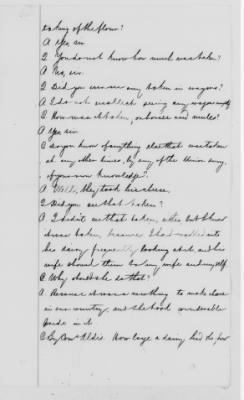 taking of the flour?
A Yes, sir.
Q You do not know how much was taken?
A No, sir.
Q Did you ever see any taken in wagons?
A I do not recollect seeing any wagons
Q How was it taken, on horses and mules?
A Yes sir.
Q Do you know of anything else that was taken
at any other times, by any of the Union army,
of your own knowledge?
A Well, they took his cheese.
Q Did you see that taken?
A I didn't see that taken, but I knew
it was taken, because I had walked into
his dairy frequently looking at it and his
wife showed them to my wife and myself
Q Why should she do that?
A Because it was a new thing to make cheese
in our country, and she took considerable
pride in it
Q By Com. Aldis. How large a dairy had he, for